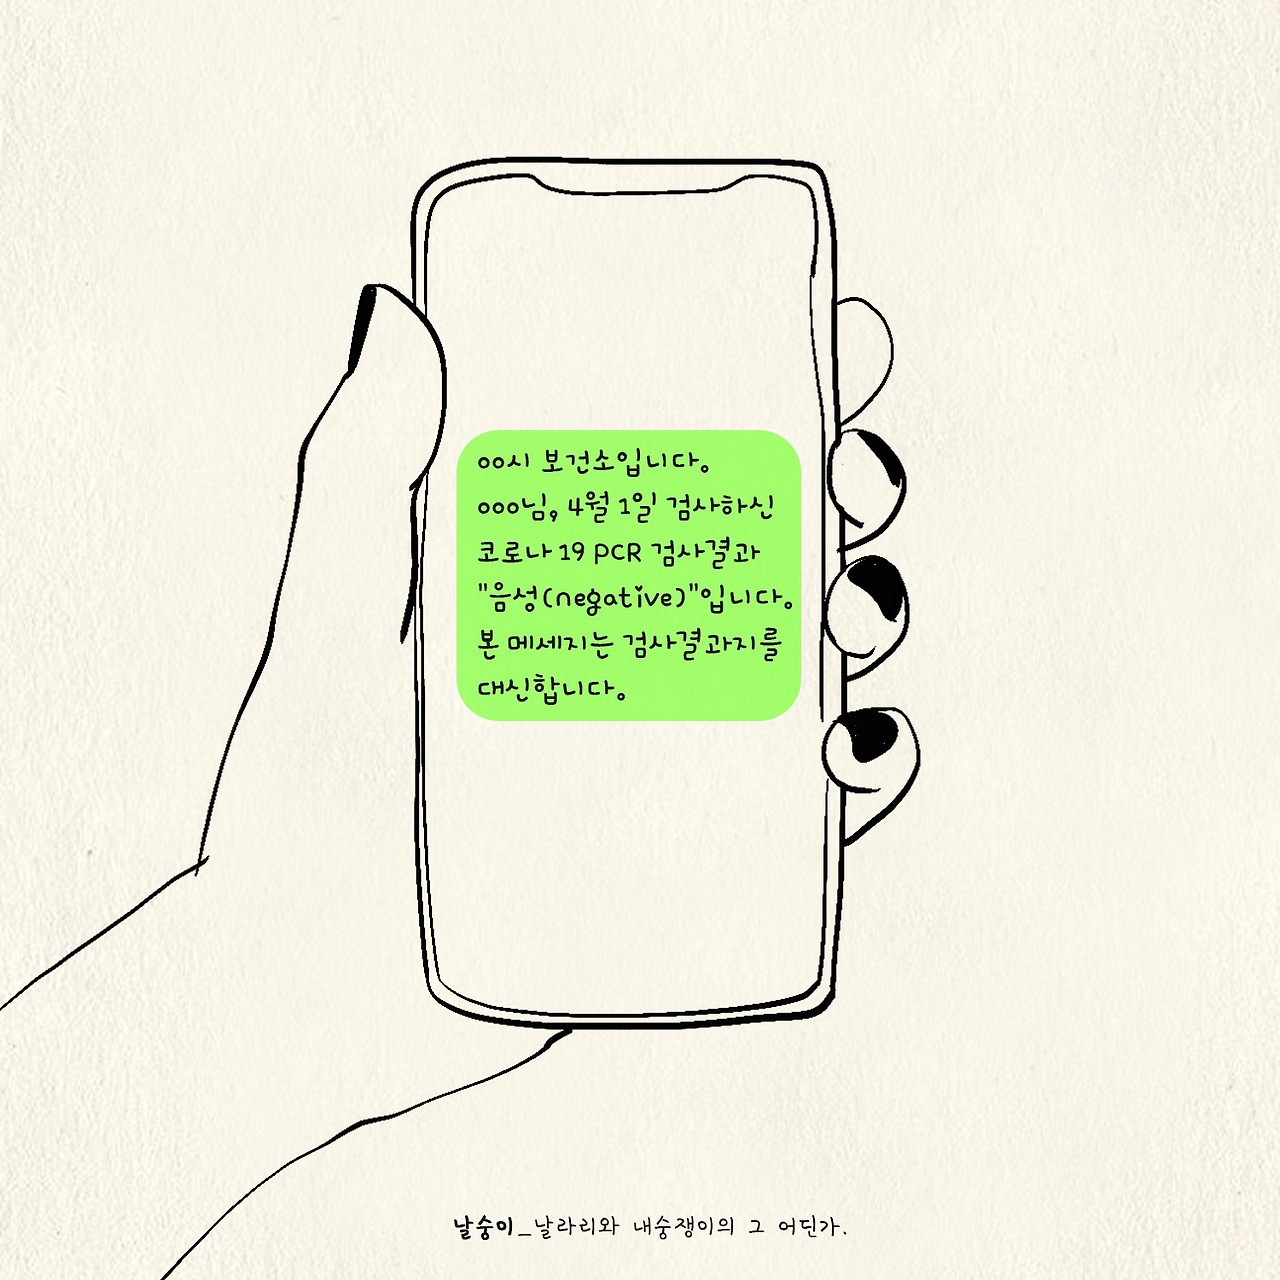 oo시 보건소입니다.
ooo님, 4월 1일 검사하신
코로나 19 PCR 검사결과
"음성(negative)"입니다.
본 메세지는 검사결과지를
대신합니다.
날숭이_날라리와 내숭쟁이의 그 어딘가.